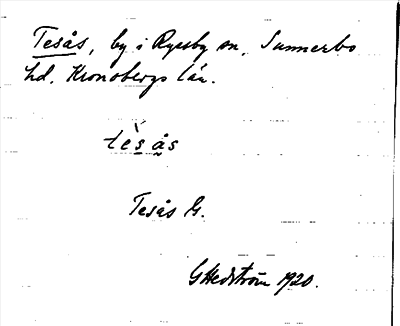 Tesås, by i Ryssby sn, Sunnerbo
hd, Kronobergs län.
tè̀sås
Tesås G.
GHedström 1920.